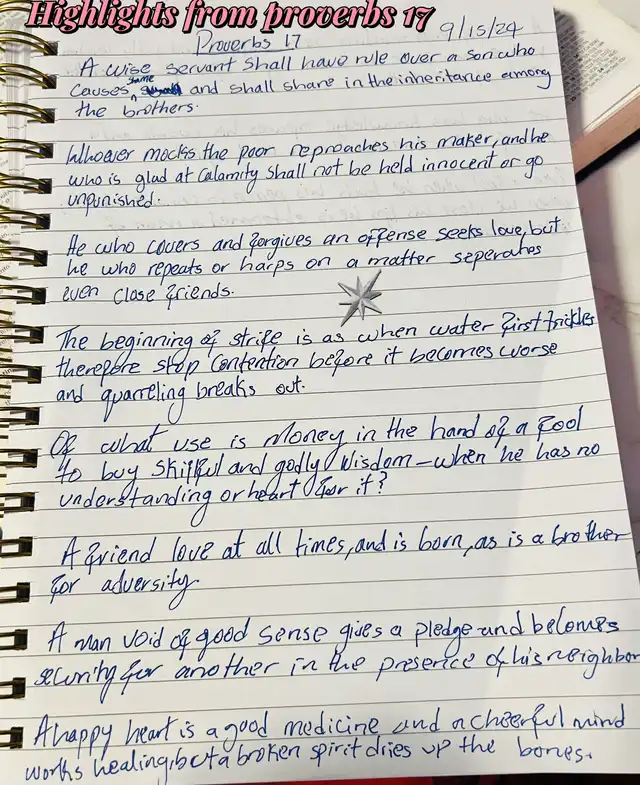 Highlights from proverbs 17
Proverbs 17
9/15/24
A wise servant shall have rule over a son who
causes shame and shall share in the inheritance among
the brothers.
Whoever mocks the poor reproaches his maker, and he
who is glad at Calamity shall not be held innocent or go
unpunished.
He who covers and forgives an offense seeks love, but
he who repeats or harps on a matter seperates
even close friends.
The beginning of strife is as when water first trickles
therefore stop contention before it becomes worse
and quarreling breaks out.
Of what use is money in the hand of a fool
to buy skillful and godly wisdom - when he has no
understanding or heart for it?
A friend love at all times, and is born, as is a brother
for adversity
A man void of good sense gives a pledge and becomes
security for another in the presence of his neighbor
A happy heart is a good medicine and a cheerful mind
works healing, but a broken spirit dries up the bones.